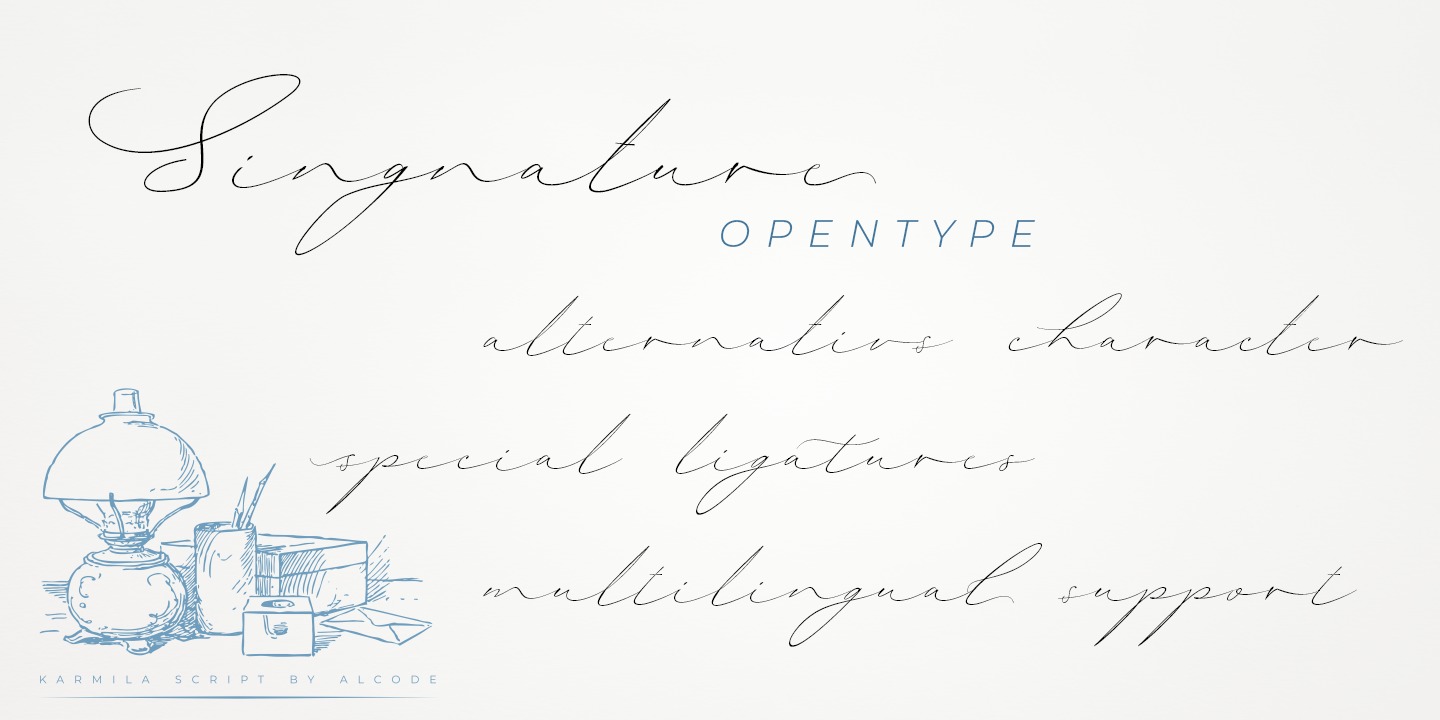 Singnature
OPENTYPE
alternativs character
special ligatures
multilingual support
KARMILA SCRIPT BY ALCODE